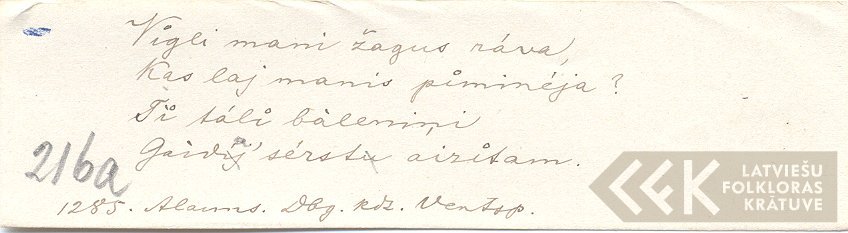 Vigli mani žagus ráva,
Kas laj manis pîminéja?
Tî táli bàleniņi
Gaidìja sérstu aizîtam.
216a
1285. Alauns. Dbg. kdz. Ventsp.
LATVIEŠU
FOLKLORAS
KRĀTUVE